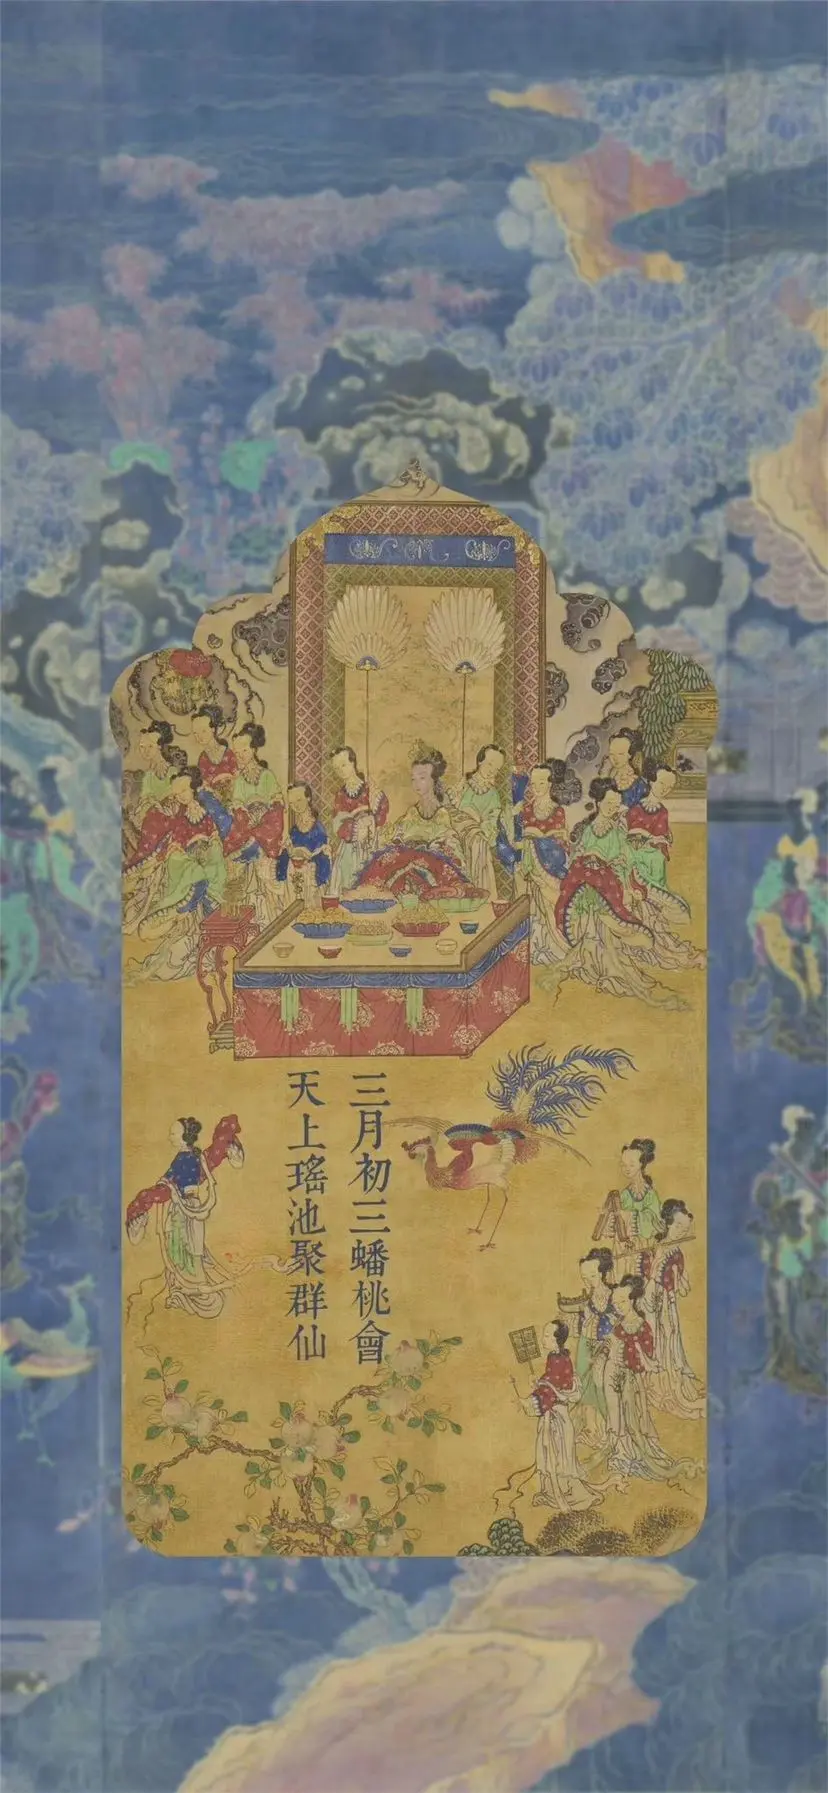 三月初三蟠桃會
天上瑤池聚群仙